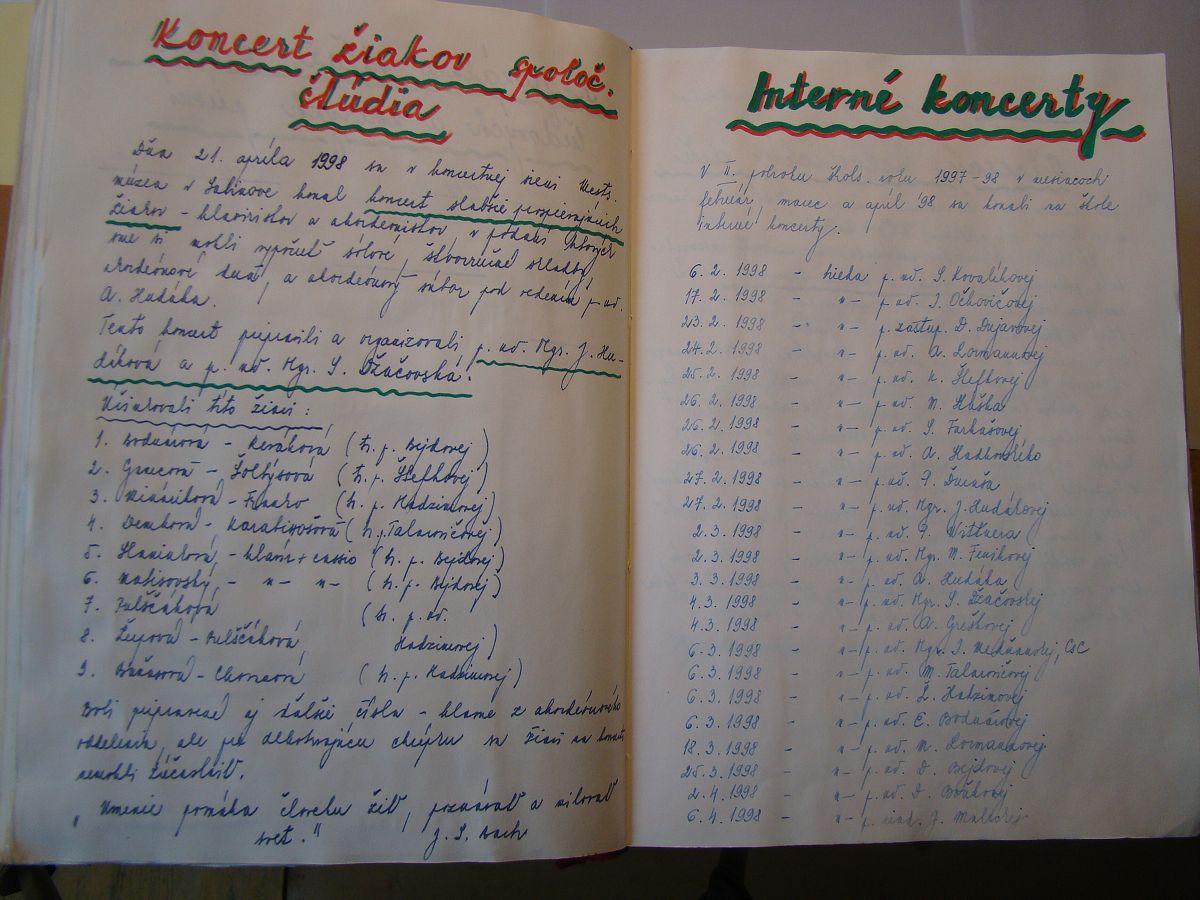 Koncert žiakov spoloč.
štúdia
Dňa 21. apríla 1998 sa v koncertnej sieni Mests.
múzea v Sabinove konal koncert slabšie prospievajúcich
žiakov - klaviristov a akordeonistov v podaní ktorých
sme si mohli vypočuť sólové, štvorručné skladby,
akordeónové duá, a akordeónový súbor pod vedením p. uč.
A. Hudáka.
Tento koncert pripravili a organizovali p. uč. Mgr. J. Hu-
dáková a p. uč. Mgr. S. Džačovská.
Účinkovali títo žiaci:
1. Bodnárová - Keráková (tr. p. Bejdovej)
2. - Šoltýsová (tr. p. Šefkovej)
3. (tr. p. Hadzimovej)
4. Demková - (tr. p. Talarovičovej)
5. - klavír + cassio (tr. p. Bejdovej)
6. Matisovský, - " - " - (tr. p. Bejdovej)
7. Pulščáková (tr. p. uč.
8. Župová - Pulščáková, Hadzimovej)
9. (tr. p. Hadzimovej)
Boli pripravené aj ďalšie čísla - hlavne z akordeónového
oddelenia, ale pre chrípku sa žiaci na koncerte
nemohli zúčastniť.
"Umenie pomáha človeku žiť, poznávať a milovať
svet." J. S. Bach
Interné koncerty
V II. polroku škol. roku 1997-98 v mesiacoch
február, marec a apríl '98 sa konali na škole
interné koncerty.
6. 2. 1998 - trieda p. uč. S. Kovalíkovej
17. 2. 1998 - " - p. uč. J. Očkovičovej
23. 2. 1998 - " - p. zástup. D. Dujavovej
24. 2. 1998 - " - p. uč. A. Lormannovej
25. 2. 1998 - " - p. uč. K. Šefkovej
26. 2. 1998 - " - p. uč. M. Huška
26. 2. 1998 - " - p. uč. S. Farkašovej
26. 2. 1998 - " - p. uč. A.
27. 2. 1998 - " - p. uč. P.
27. 2. 1998 - " - p. uč. Mgr. J. Hudákovej
2. 3. 1998 - " - p. uč. P. Wittnera
2. 3. 1998 - " - p. uč. Mgr. M. Fenikovej
3. 3. 1998 - " - p. uč. A. Hudáka
4. 3. 1998 - " - p. uč. Mgr. S. Džačovskej
4. 3. 1998 - " - p. uč. A. Greškovej
6. 3. 1998 - " - p. uč. Mgr. I. CSc
6. 3. 1998 - " - p. uč. M. Talarovičovej
6. 3. 1998 - " - p. uč. Ľ. Hadzimovej
6. 3. 1998 - " - p. uč. E. Bodnárovej
18. 3. 1998 - " - p. uč. M. Lormannovej
25. 3. 1998 - " - p. uč. D. Bejdovej
2. 4. 1998 - " - p. uč. D.
6. 4. 1998 - " - p. riad. J.